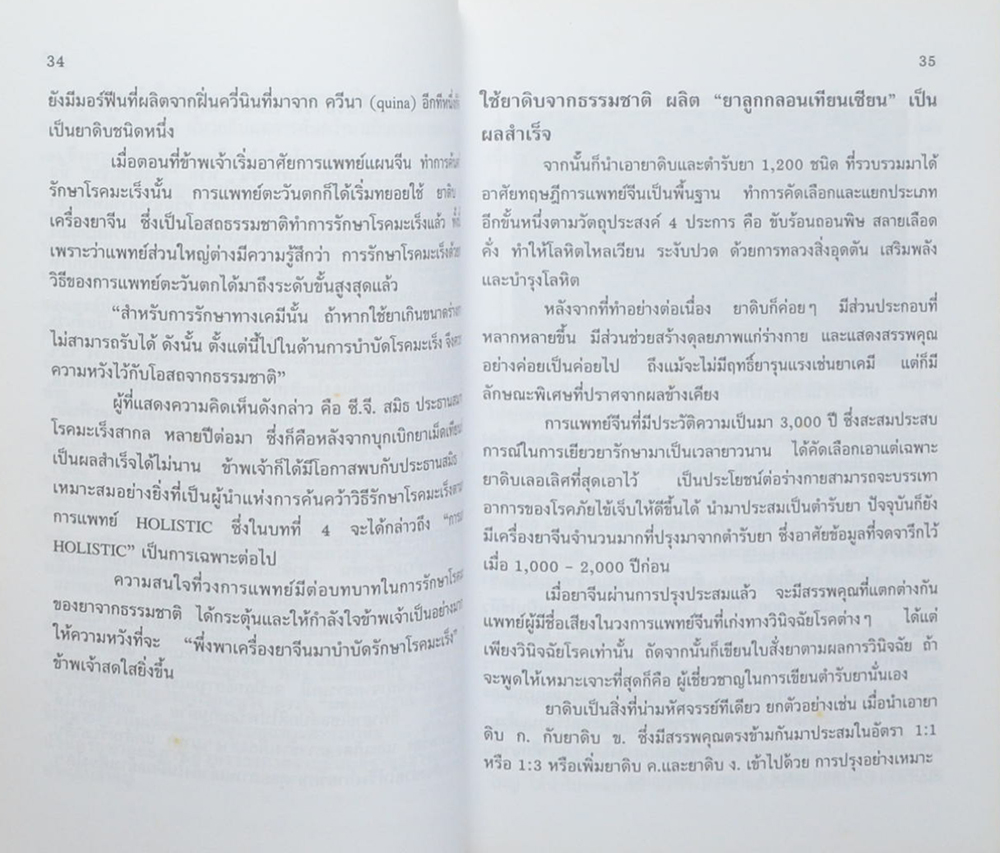 34
ยังมีมอร์ฟีนที่ผลิตจากฝิ่นควี่นินที่มาจาก ควีนา (quina) อีกทีหนึ่ง
เป็นยาดิบชนิดหนึ่ง
เมื่อตอนที่ข้าพเจ้าเริ่มอาศัยการแพทย์แผนจีน ทำการค้น
รักษาโรคมะเร็งนั้น การแพทย์ตะวันตกก็ได้เริ่มทยอยใช้ ยาดิบ
เครื่องยาจีน ซึ่งเป็นโอสถธรรมชาติทำการรักษาโรคมะเร็งแล้ว
เพราะว่าแพทย์ส่วนใหญ่ต่างมีความรู้สึกว่า การรักษาโรคมะเร็งด้วย
วิธีของการแพทย์ตะวันตกได้มาถึงระดับขั้นสูงสุดแล้ว
“สำหรับการรักษาทางเคมีนั้น ถ้าหากใช้ยาเกินขนาดร่าง
ไม่สามารถรับได้ ดังนั้น ตั้งแต่นี้ไปในด้านการบำบัดโรคมะเร็ง จึง
ความหวังไว้กับโอสถจากธรรมชาติ”
ผู้ที่แสดงความคิดเห็นดังกล่าว คือ ซี.จี. สมิธ ประธาน
โรคมะเร็งสากล หลายปีต่อมา ซึ่งก็คือหลังจากบุกเบิกยาเม็ดเทียน
เป็นผลสำเร็จได้ไม่นาน ข้าพเจ้าก็ได้มีโอกาสพบกับประธานสมิธ
เหมาะสมอย่างยิ่งที่เป็นผู้นำแห่งการค้นคว้าวิธีรักษาโรคมะเร็ง
การแพทย์ HOLISTIC ซึ่งในบทที่ 4 จะได้กล่าวถึง “การ
HOLISTIC” เป็นการเฉพาะต่อไป
ความสนใจที่วงการแพทย์มีต่อบทบาทในการรักษาโรค
ของยาจากธรรมชาติ ได้กระตุ้นและให้กำลังใจข้าพเจ้าเป็นอย่างมาก
ให้ความหวังที่จะ “พึ่งพาเครื่องยาจีนมาบำบัดรักษาโรคมะเร็ง”
ข้าพเจ้าสดใสยิ่งขึ้น
35
ใช้ยาดิบจากธรรมชาติ ผลิต “ยาลูกกลอนเทียนเซียน” เป็น
ผลสำเร็จ
จากนั้นก็นำเอายาดิบและตำรับยา 1,200 ชนิด ที่รวบรวมมาได้
อาศัยทฤษฎีการแพทย์จีนเป็นพื้นฐาน ทำการคัดเลือกและแยกประเภท
อีกขั้นหนึ่งตามวัตถุประสงค์ 4 ประการ คือ ขับร้อนถอนพิษ สลายเลือด
คั่ง ทำให้โลหิตไหลเวียน ระงับปวด ด้วยการทลวงสิ่งอุดตัน เสริมพลัง
และบำรุงโลหิต
หลังจากที่ทำอย่างต่อเนื่อง ยาดิบก็ค่อยๆ มีส่วนประกอบที่
หลากหลายขึ้น มีส่วนช่วยสร้างดุลยภาพแก่ร่างกาย และแสดงสรรพคุณ
อย่างค่อยเป็นค่อยไป ถึงแม้จะไม่มีฤทธิ์ยารุนแรงเช่นยาเคมี แต่ก็มี
ลักษณะพิเศษที่ปราศจากผลข้างเคียง
การแพทย์จีนที่มีประวัติความเป็นมา 3,000 ปี ซึ่งสะสมประสบ
การณ์ในการเยียวยารักษามาเป็นเวลายาวนาน ได้คัดเลือกเอาแต่เฉพาะ
ยาดิบเลอเลิศที่สุดเอาไว้ เป็นประโยชน์ต่อร่างกายสามารถจะบรรเทา
อาการของโรคภัยไข้เจ็บให้ดีขึ้นได้ นำมาประสมเป็นตำรับยา ปัจจุบันก็ยัง
มีเครื่องยาจีนจำนวนมากที่ปรุงมาจากตำรับยา ซึ่งอาศัยข้อมูลที่จดจารึกไว้
เมื่อ 1,000 - 2,000 ปีก่อน
เมื่อยาจีนผ่านการปรุงประสมแล้ว จะมีสรรพคุณที่แตกต่างกัน
แพทย์ผู้มีชื่อเสียงในวงการแพทย์จีนที่เก่งทางวินิจฉัยโรคต่างๆ ได้แต่
เพียงวินิจฉัยโรคเท่านั้น ถัดจากนั้นก็เขียนใบสั่งยาตามผลการวินิจฉัย ถ้า
จะพูดให้เหมาะเจาะที่สุดก็คือ ผู้เชี่ยวชาญในการเขียนตำรับยานั่นเอง
ยาดิบเป็นสิ่งที่น่ามหัศจรรย์ทีเดียว ยกตัวอย่างเช่น เมื่อนำเอายา
ดิบ ก. กับยาดิบ ข. ซึ่งมีสรรพคุณตรงข้ามกันมาประสมในอัตรา 1:1
หรือ 1:3 หรือเพิ่มยาดิบ ค.และยาดิบ ง. เข้าไปด้วย การปรุงอย่างเหมาะ